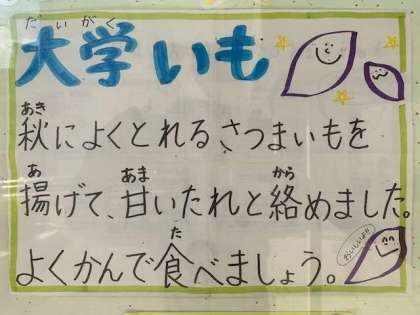 だいがく
大学いも
あき
秋によくとれる、さつまいもを
あ あま から
揚げて、甘いたれと絡めました。
た
よくかんで食べましょう。
おいしいよ!!